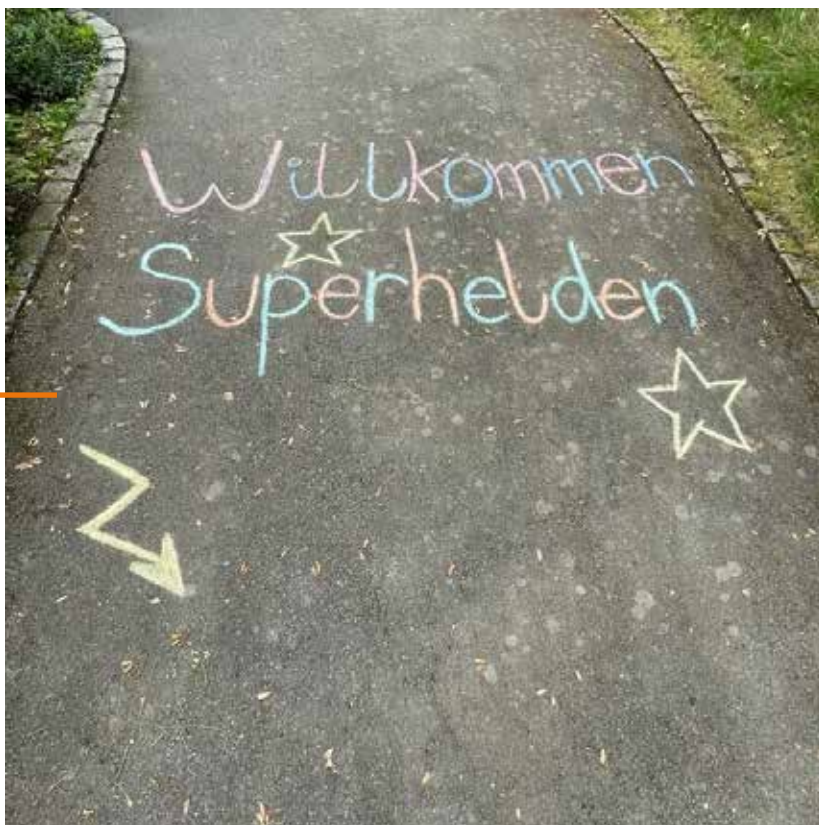 Willkommen
Superhelden